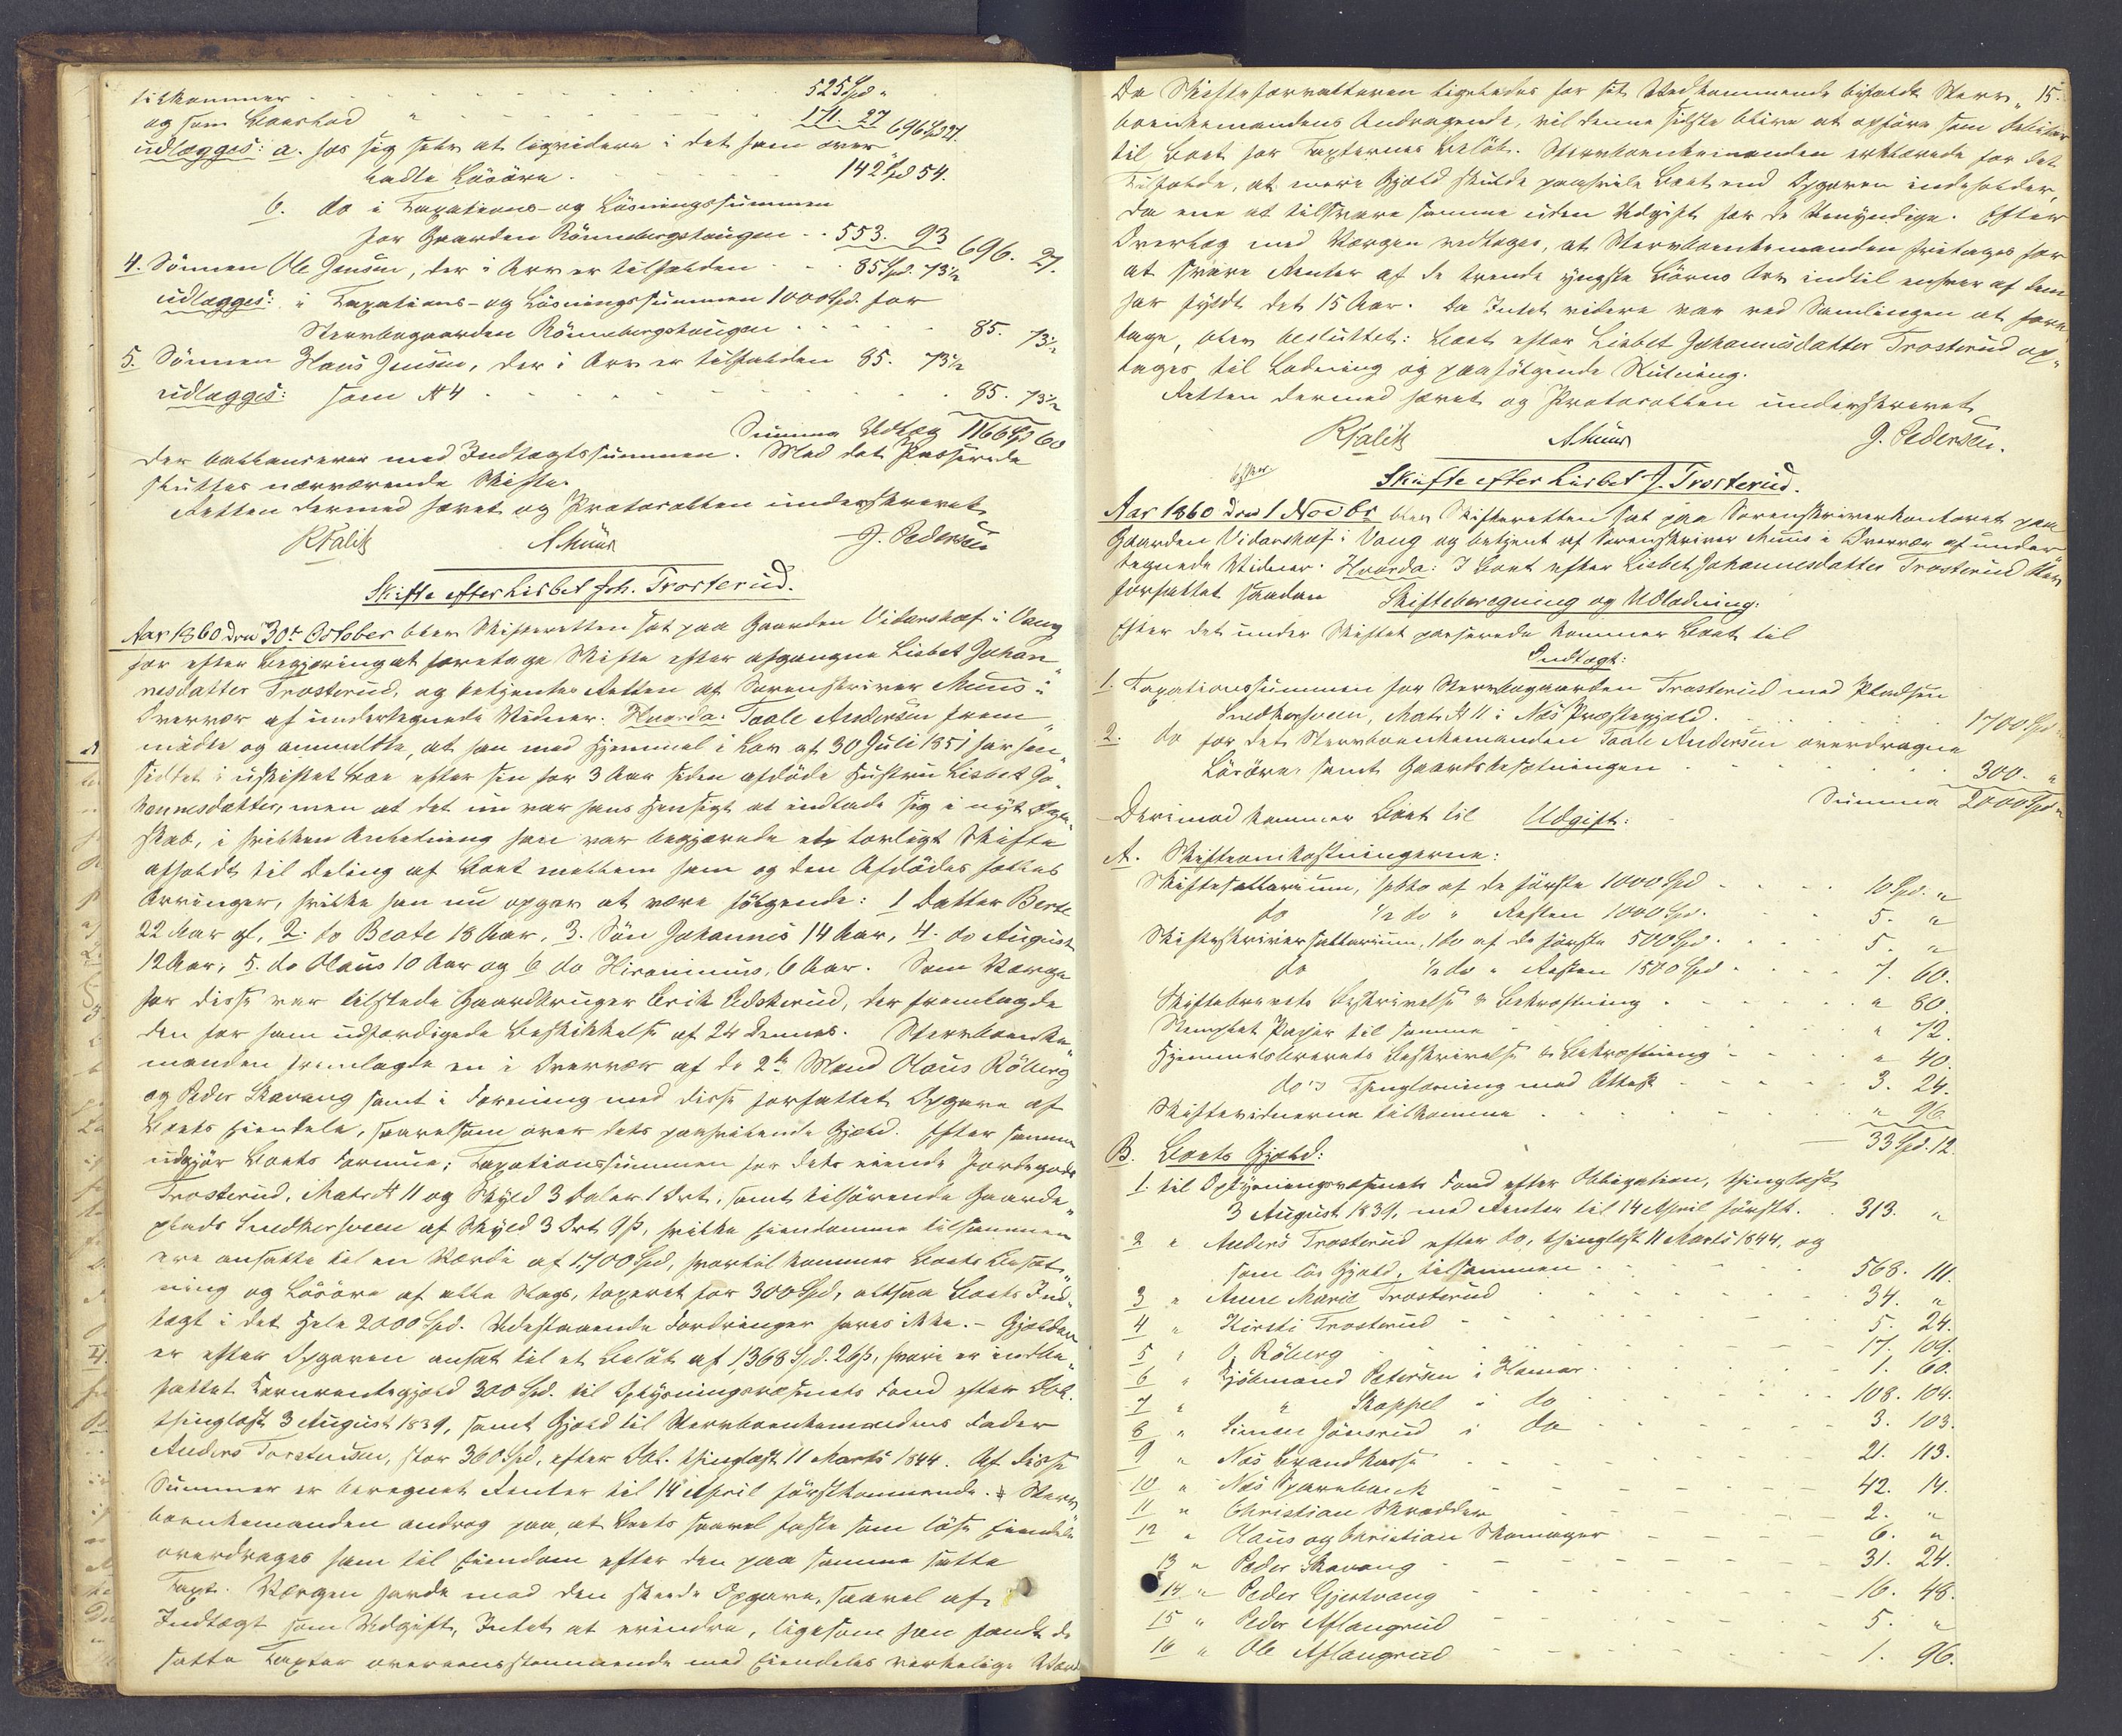 tilkommer 525 Spd "
og som Boeslod " 171. 27 696 Spd 27.
udlægges: a. hos sig selv at liqvidere i det ham over
ladte Løsøre. 142 Spd 54.
b. do i Taxations- og Løsningssummen
for Gaarden Rønnebergshaugen 553. 93 696. 27.
4. Sønnen Ole Jensen, der i Arv er tilfalden 85 Spd. 73 1/2
udlægges: i Taxations- og Løsningssummen 1000 Spd. for
Stervbogaarden Rønnebergshaugen 85. 73 1/2
5. Sønnen Hans Jensen, der i Arv er tilfalden 85. 73 1/2
udlægges: som № 4 85. 73 1/2
Summa Udlæg 1166 Spd 60
der ballancerer med Indtægtssummen. Med det Passerede
sluttes nærværende Skifte.
Retten dermed hævet og Protocollen underskrevet
RFalck AMuus J. Pedersen
Skifte efter Lisbet Joh. Trosterud.
Aar 1860 den 30te October blev Skifteretten sat paa Gaarden Vidarshof i Vang
for efter Begjæring at foretage Skifte efter afgangne Lisbet Johan„
nesdatter Trosterud, og betjentes Retten af Sorenskriver Muus i
Overvær af undertegnede Vidner. Hvorda: Taale Andersen frem„
mødte og anmeldte, at han med Hjemmel i Lov af 30 Juli 1851 har hen„
siddet i uskiftet Boe efter sin for 3 Aar siden afdøde Hustru Lisbet Jo„
hannesdatter, men at det nu var hans Hensigt at indlade sig i nyt Ægte„
skab, i hvilken Anledning han var begjærende et lovligt Skifte
afholdt til Deling af Boet mellem ham og den Afdødes fælles
Arvinger, hvilke han nu opgav at være følgende: 1 Datter Berte
22 Aar gl, 2. do Beate 18 Aar, 3. Søn Johannes 14 Aar, 4. do August
12 Aar, 5. do Olaus 10 Aar og 6 do Hironimus, 6 Aar. Som Værge
for disse var tilstede Gaardbruger Erik Udskerud, der fremlagde
den for ham udfærdigede Beskikkelse af 24 dennes. Stervboenke„
manden fremlagde en i Overvær af de 2de Mænd Olaus Røberg
og Peder Skavang samt i Forening med disse forfattet Opgave af
Boets Eiendele, saavelsom over dets paahvilende Gjæld. Efter samme
udgjør Boets Formue: Taxationssummen for dets eiende Jordegods
Trosterud, Matr № 11 og Skyld 3 Daler 1 Ort, samt tilhørende Gaarde„
plads Snedkersveen af Skyld 3 Ort 9 ß, hvilke Eiendomme tilsammen
ere ansatte til en Værdi af 1700 Spd, hvortil kommer Boets Besæt„
ning og Løsøre af alle Slags, taxeret for 300 Spd, altsaa Boets Ind„
tægt i det Hele 2000 Spd. Udestaaende Fordringer haves ikke. – Gjælden
er efter Opgaven ansat til et Beløb af 1,368 Spd. 26 ß, hvori er indbe„
fattet 300 Spd. til Oplysningsvæsenets Fond efter Obl.
thinglæst 3 August 1839, samt Gjæld til Stervboenkemandens Fader
Anders Torstensen, stor 360 Spd, efter Obl. thinglæst 11 Marts 1844. Af disse
Summer er beregnet Renter til 14 April førstkommende. Sterv„
boenkemanden androg paa, at Boets saavel faste som løse Eiendele
overdrages ham til Eiendom efter den paa samme satte
Taxt. Værgen havde mod den skeede Opgave, saavel af
Indtægt som Udgift, Intet at erindre, ligesom han fandt de
satte Taxter overeensstemmende med Eiendeles virkelige Værd
15.
Da Skifteforvalteren ligeledes for sit Vedkommende bifaldt Sterv„
boenkemandens Andragende, vil denne sidste blive at opføre som Debitor
til Boet for Taxternes Beløb. Stervboenkemanden erklærede for det
Tilfælde, at mere Gjæld skulde paahvile Boet end Opgaven indeholder,
da ene at tilsvare samme uden Udgift for de Umyndige. Efter
Overlæg med Værgen vedtoges, at Stervboenkemanden fritages for
at svare Renter af de trende yngste Børns Arv indtil enhver af dem
har fyldt det 15 Aar. Da Intet videre var ved Samlingen at fore
tage, blev besluttet: Boet efter Lisbet Johannesdatter Trosterud op„
tages til Lodning og paafølgende Slutning.
Retten dermed hævet og Protocollen underskrevet
RFalck AMuus J. Pedersen.
Skifte efter Lisbet J. Trosterud.
Aar 1860 den 1 Novbr blev Skifteretten sat paa Sorenskriverkontoret paa
Gaarden Vidarshof i Vang og betjent af Sorenskriver Muus i Overvær af under
tegnede Vidner. Hvorda: I Boet efter Lisbet Johannesdatter Trosterud blev
forfattet saadan Skifteberegning og Udlodning:
Efter det under Skiftet passerede kommer Boet til
Indtægt:
1. Taxationssummen for Stervbogaarden Trosterud med Pladsen
Snedkersveen, Matr № 11 i Næs Præstegjæld. 1700 Spd "
2. do for det Stervboenkemanden Taale Andersen overdragne
Løsøre samt Gaardsbesætningen 300. "
Summa 2000 Spd "
Derimod kommer Boet til Udgift:
A. Skifteomkostningerne:
Skiftesallarium, 1 pCto af de første 1000 Spd 10 Spd. "
do 1/2 do " Resten 1000 Spd. 5. "
Skifteskriversallarium, 1 do af de første 500 Spd. 5. "
do 1/2 do " Resten 1500 Spd 7. 60.
Skiftebrevets Beskrivelse & Bekræftning " 80.
Stemplet Papir til samme " 72.
Hjemmelsbrevets Beskrivelse & Bekræftning " 40.
do's Thinglæsning med Attest 3. 24.
Skiftevidnerne tilkomme " 96
33 Spd. 12.
B. Boets Gjæld:
1. til Oplysningsvæsenets Fond efter Obligation, thinglæst
3 August 1839, med Renter til 14 April førstk. 313. "
2 " Anders Trosterud efter do, thinglæst 11 Marts 1844, og
som løs Gjæld, tilsammen 568. 111.
3 " Anne Marie Trosterud 34. "
4 " Kirsti Trosterud 5. 24.
5 " O. Røberg 17. 109.
6 " Kjøbmand Petersen i Hamar 1. 60.
7 " " Skappel i do 108. 104.
8 " Simen Jønsrud i do 3. 103.
9 " Næs Brandkasse 21. 113.
10 " Næs Sparebank 42. 14.
11 " Christian Skrædder 2. "
12 " Olaus og Christian Skomager 6. "
13 " Peder Skavang 31. 24.
14 " Peder Gjestvang 16. 48.
15 " Peder Aflangrud 5. "
16 " Ole Aflangrud 1. 96.